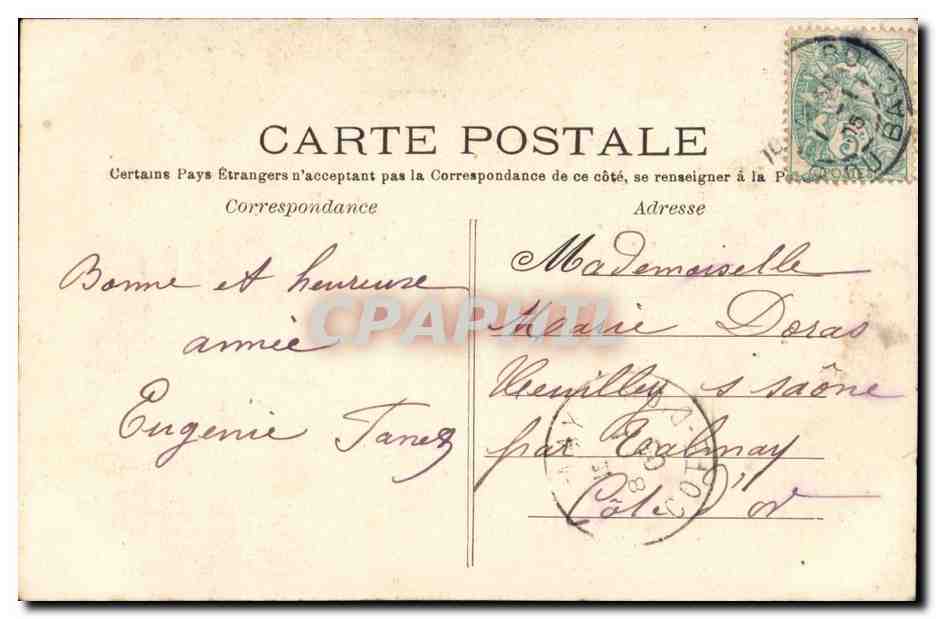 CARTE POSTALE
Certains Pays Étrangers n'acceptant pas la Correspondance de ce côté, se renseigner à la
Correspondance
Adresse
Bonne et heureuse
année
Eugénie
Mademoiselle
Marie Doras
s saône
par
Côte d'or
CPAPHIL
COTE-D